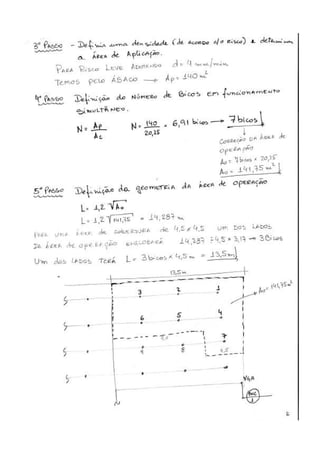 3º PASSO - Definir uma densidade (de acordo c/o risco) e determinar
a área de Aplicação.
PARA Risco LEVE ADOTANDO d = 4 mm/min
TEMOS PELO ÁBACO → Ap = 140 m²
4º PASSO Definição do NÚMERO de Bicos em funcionamento
SIMULTÂNEO.
N = Ap/Ac N = 140/20,25 = 6,91 bicos → 7 bicos
CORREÇÃO DA ÁREA DE
OPERAÇÃO
Ao = 7 bicos x 20,25
Ao = 141,75 m²
5º PASSO Definição da geometria da ÁREA de operação
L = 1,2 √Ao
L = 1,2 √141,75 = 14,287 m
PARA UMA ÁREA DE COBERTURA de 4,5 x 4,5 UM DOS LADOS
DE ÁREA de operação ENGLOBARÁ 14,287 ÷ 4,5 = 3,17 → 3 Bicos
Um dos LADOS TERÁ L = 3 bicos x 4,5 m = 13,5 m
13,5 m
Ao = 141,75 m²
3 2 1
6 5 4
7
8
VGA
2